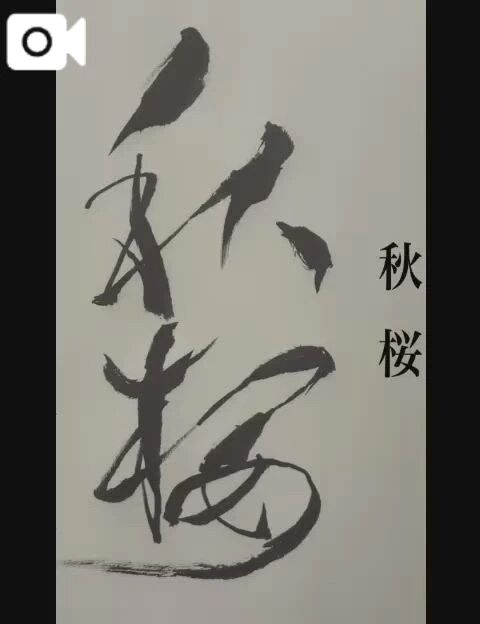 秋桜
秋桜